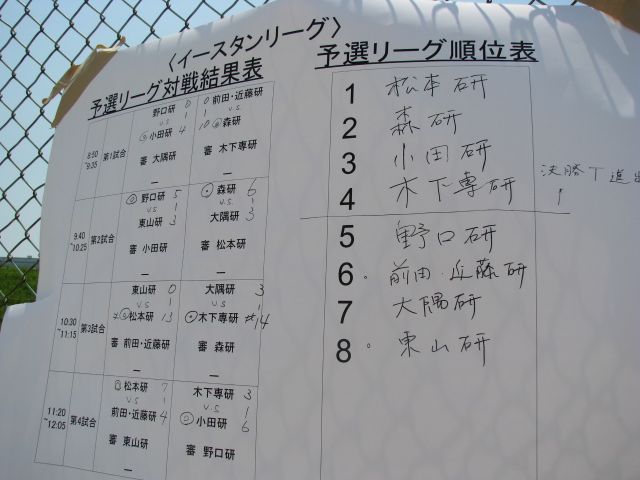 〈イースタンリーグ〉
予選リーグ対戦結果表
8:50
~9:35
第1試合
野口研 0
v.s 1
小田研 4
審 大隅研
0 前田・近藤研
1 v.s
10 森研
審 木下専研
9:40
~10:25
第2試合
野口研 5
v.s 1
東山研 3
審 小田研
森研 6
v.s 1
大隅研 3
審 松本研
10:30
~11:15
第3試合
東山研 0
v.s 1
松本研 13
審 前田・近藤研
大隅研 3
v.s 1
木下専研 14
審 森研
11:20
~12:05
第4試合
松本研 7
v.s 1
前田・近藤研 4
審 東山研
木下専研 3
v.s 1
小田研 6
審 野口研
予選リーグ順位表
1 松本研
2 森研
3 小田研
4 木下専研
決勝T進出
5 野口研
6 前田・近藤研
7 大隅研
8 東山研